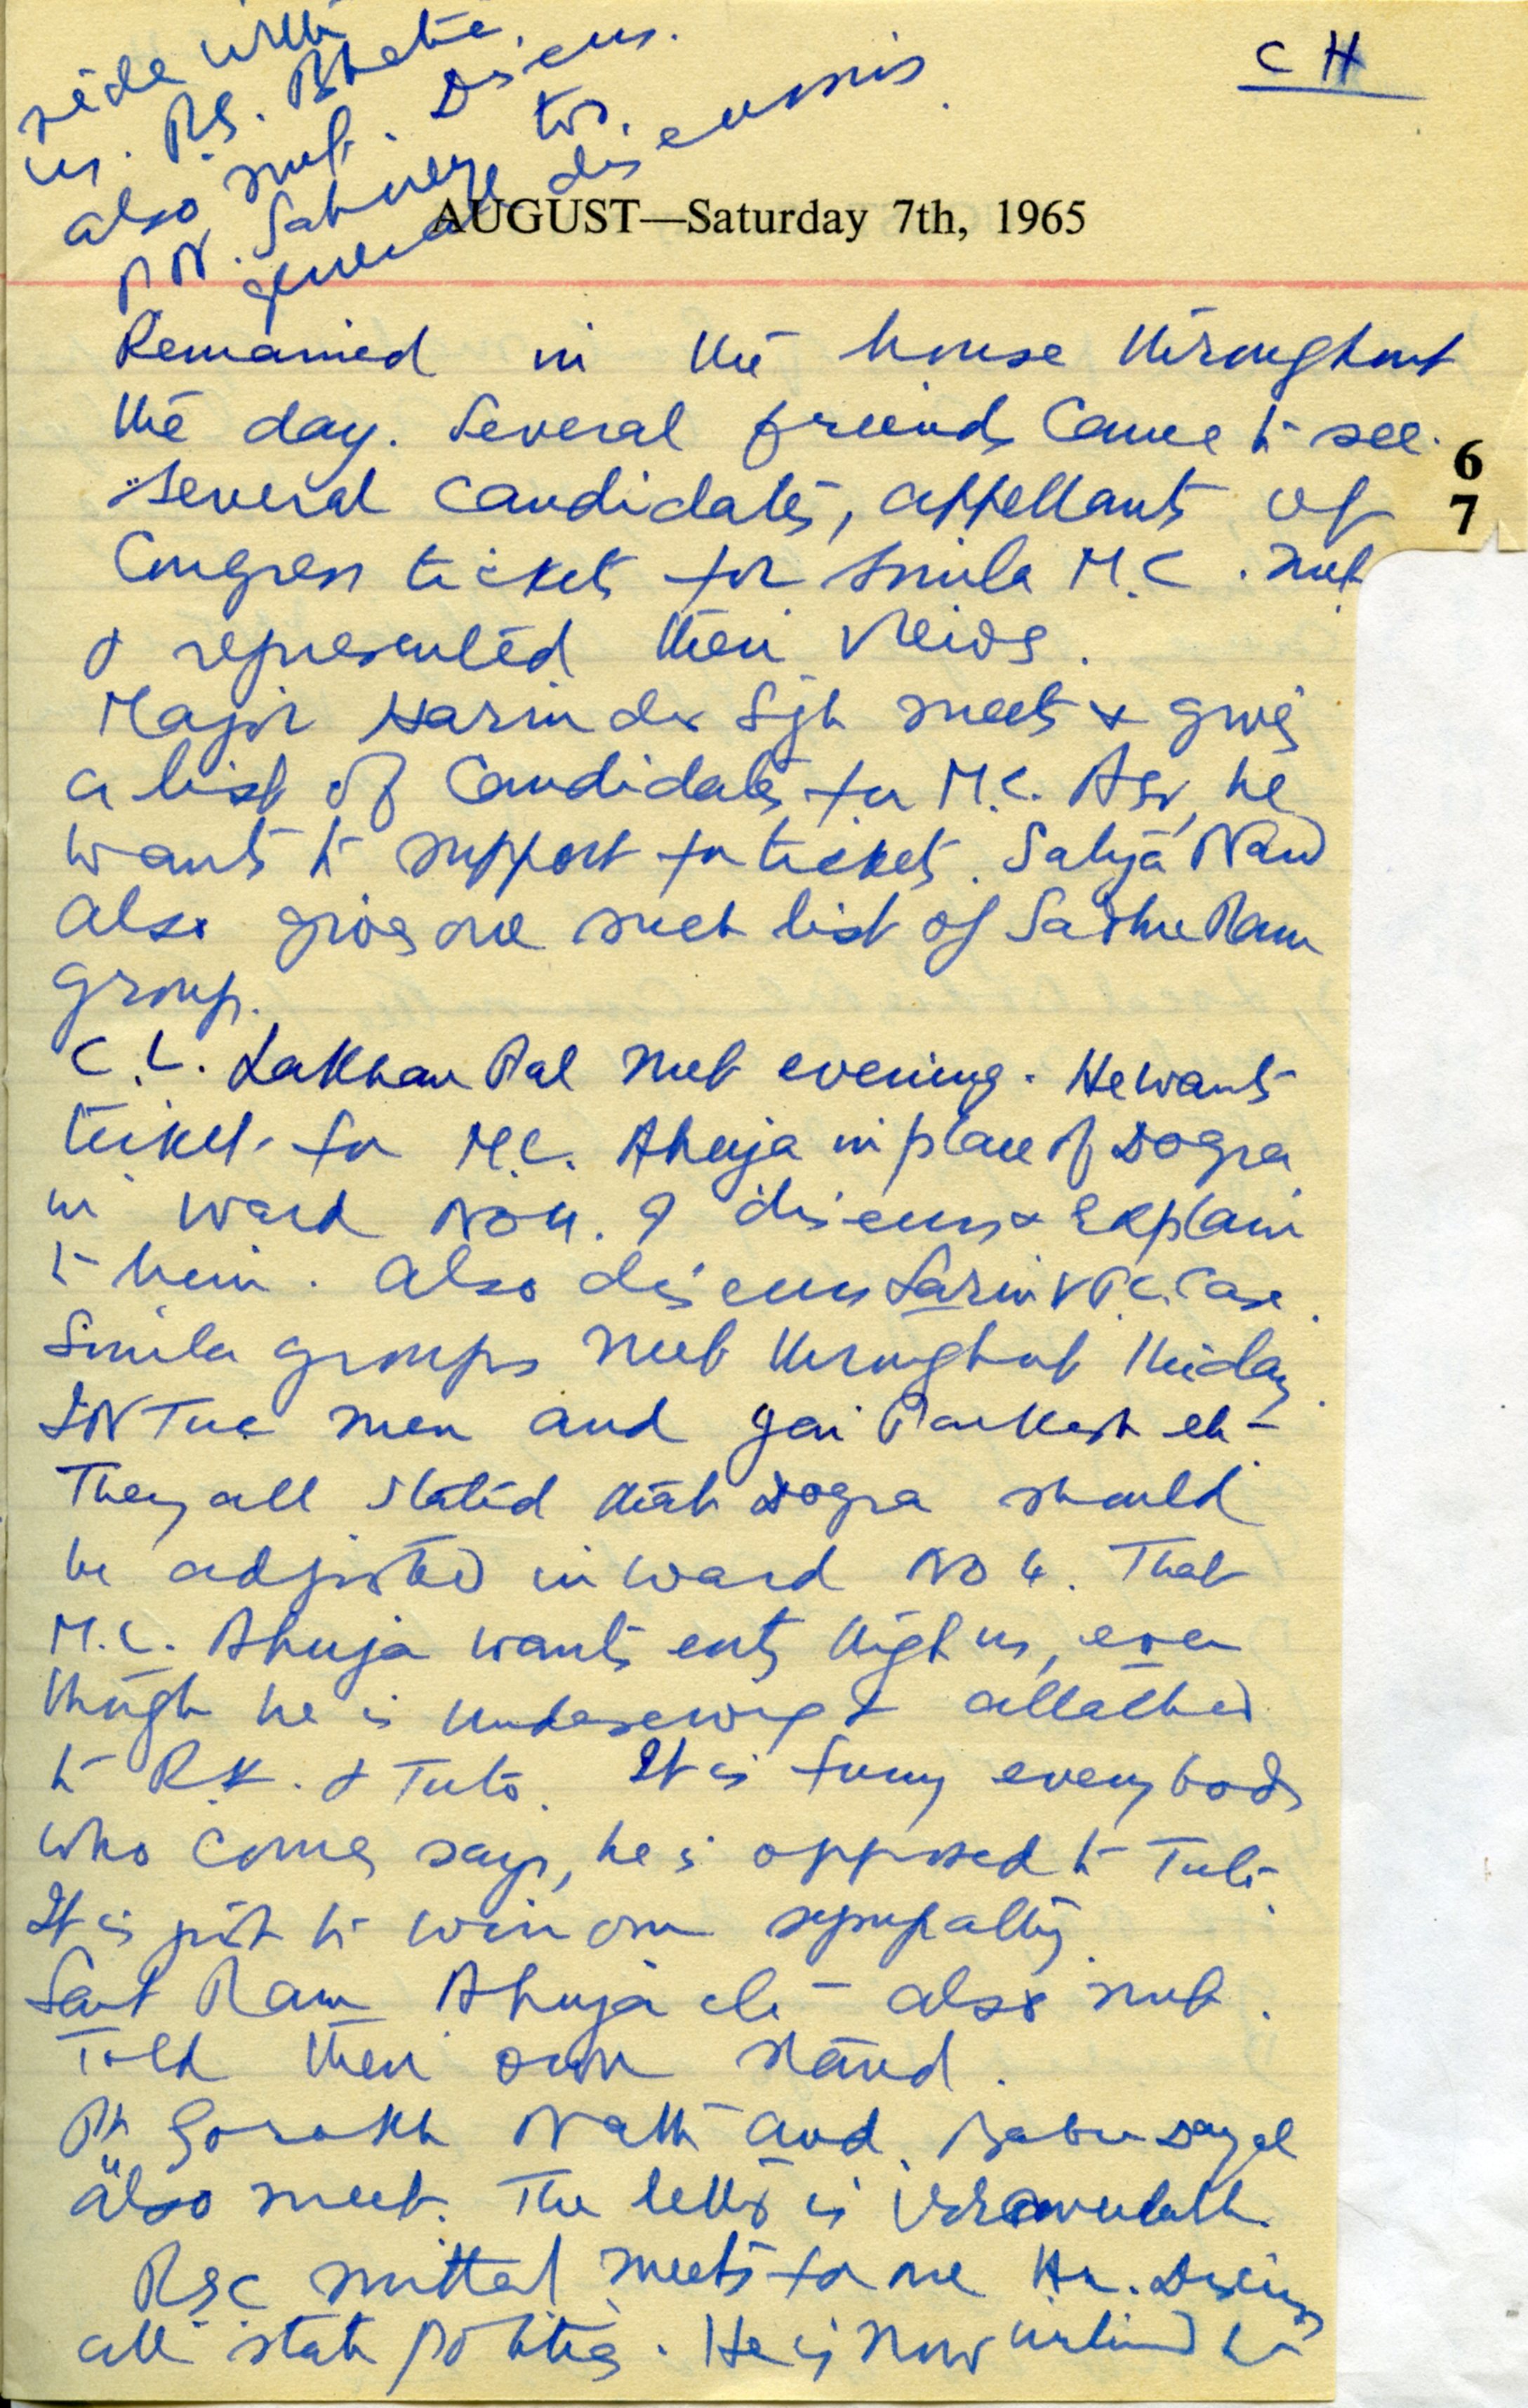 side with
us. R.S. Bhatia.
also met. Discus.
too.
general discussions
C H
AUGUST—Saturday 7th, 1965
6
7
Remained in the house throughout
the day. Several friends came to see.
Several candidates, appellants of
Congress tickets for Simla M.C. met
& represented their views.
Major Harinder Sgh meets & gives
a list of candidates for M.C. Asr, he
wants to support for tickets. Satya Nand
also gives one such list of Sadhu Ram
group.
C.L. LakhanPal met evening. He wants
ticket for M.C. Ahuja in place of Dogra
in ward No 4. I discuss & explain
to him. Also discuss Sarin V P.C. case.
Simla groups met throughout the day.
INTUC men and Jai Parkash etc
They all stated that Dogra should
be adjusted in ward No 4. That
M.C. Ahuja wants entry through us, even
though he is undeserving & attatched
to R.K. & Tuto. It is funny everybody
who comes says, he is opposed to Tuto.
It is just to win our sympathy.
Sant Ram Ahuja etc also met.
Told their own stand.
Pt Gorakh Nath and Babu Dayal
also meet. The letter is
RSC Mittal meets for one Hr. Discuss
all state politics. He is now inclined to